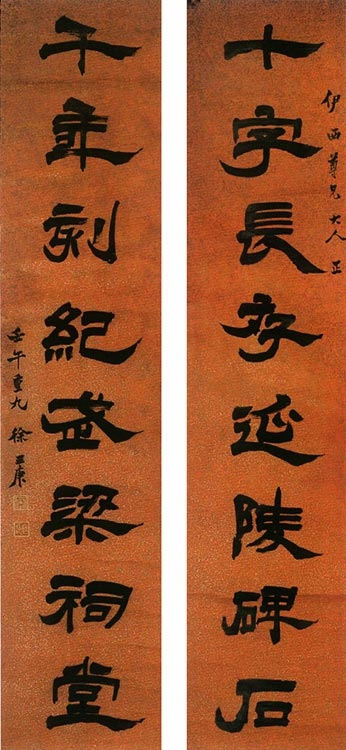 伊西尊兄大人正
十字長存延陵碑石
千年刻紀武梁祠堂
壬午重九徐三庚